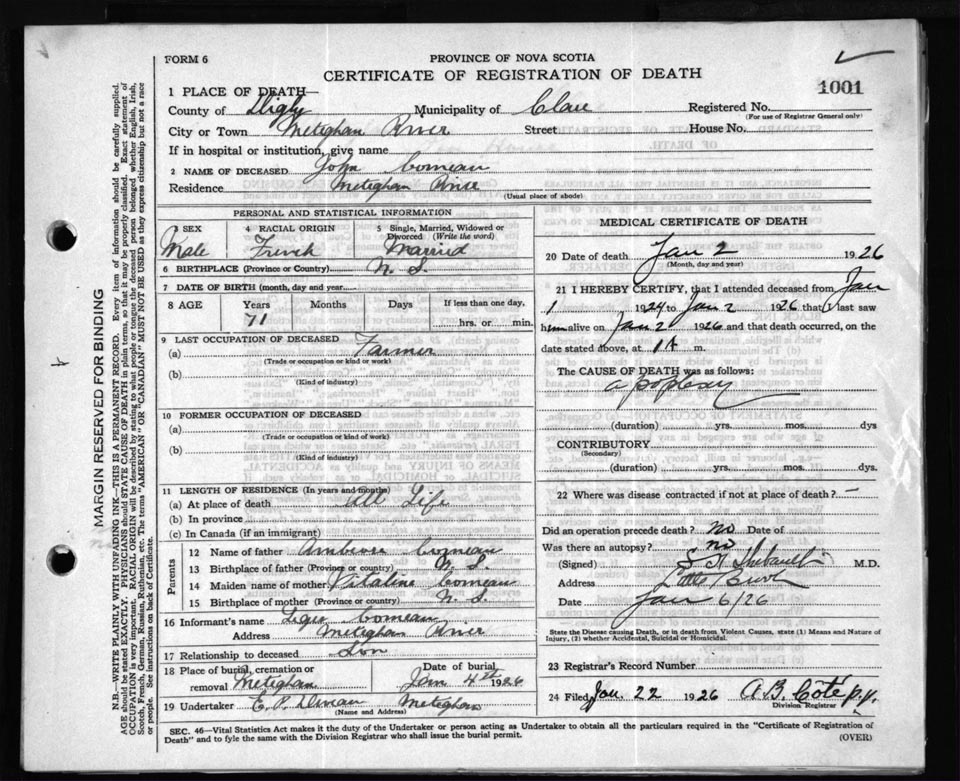 FORM 6
PROVINCE OF NOVA SCOTIA
CERTIFICATE OF REGISTRATION OF DEATH
1001
1 PLACE OF DEATH—
County of Digby Municipality of Clare Registered No.
(For use of Registrar General only)
City or Town Meteghan River Street House No.
If in hospital or institution, give name
2 NAME OF DECEASED John Comeau
Residence Meteghan River
(Usual place of abode)
PERSONAL AND STATISTICAL INFORMATION
3 SEX 4 RACIAL ORIGIN 5 Single, Married, Widowed or Divorced (Write the word)
Male French Married
6 BIRTHPLACE (Province or Country) N. S.
7 DATE OF BIRTH (month, day and year)
8 AGE Years Months Days If less than one day,
71 hrs. or min.
9 LAST OCCUPATION OF DECEASED
(a) Farmer
(Trade or occupation or kind of work)
(b)
(Kind of industry)
10 FORMER OCCUPATION OF DECEASED
(a)
(Trade or occupation or kind of work)
(b)
(Kind of industry)
11 LENGTH OF RESIDENCE (In years and months)
(a) At place of death All Life
(b) In province
(c) In Canada (if an immigrant)
Parents
12 Name of father Ambrose Comeau
13 Birthplace of father (Province or country) N. S.
14 Maiden name of mother Vitaline Comeau
15 Birthplace of mother (Province or country) N. S.
16 Informant's name Leger Comeau
Address Meteghan River
17 Relationship to deceased Son
18 Place of burial, cremation or removal Meteghan Date of burial Jan 4th 1926
19 Undertaker E. P. Meteghan
(Name and Address)
MEDICAL CERTIFICATE OF DEATH
20 Date of death Jan 2 1926
(Month, day and year)
21 I HEREBY CERTIFY, that I attended deceased from Jan
1 1924 to Jan 2 1926 that I last saw
him alive on Jan 2 1926 and that death occurred, on
date stated above, at 1 A m.
The CAUSE OF DEATH was as follows:
apoplexy
(duration) yrs. mos. dys
CONTRIBUTORY
(Secondary)
(duration) yrs. mos. dys.
22 Where was disease contracted if not at place of death? —
Did an operation precede death? no Date of
Was there an autopsy? no
(Signed) Thibault M.D.
Address Little Brook
Date Jan 6/26
State the Disease causing Death, or in death from Violent Causes, state (1) Means and Nature of
Injury, (2) whether Accidental, Suicidal or Homicidal.
23 Registrar's Record Number
24 Filed Jan. 22 1926 A. B. Côté
Division Registrar
SEC. 46—Vital Statistics Act makes it the duty of the Undertaker or person acting as Undertaker to obtain all the particulars required in the "Certificate of Registration of
Death" and to fyle the same with the Division Registrar who shall issue the burial permit.
(OVER)
MARGIN RESERVED FOR BINDING
N.B.—WRITE PLAINLY WITH UNFADING INK—THIS IS A PERMANENT RECORD. Every item of information should be carefully supplied.
AGE should be stated EXACTLY. PHYSICIANS should STATE CAUSE OF DEATH in plain terms, so that it may be properly classified. Exact statement of
OCCUPATION is very important. RACIAL ORIGIN will be described by stating to what people or tongue the deceased person belonged whether English, Irish,
Scotch, French, German, Russian, Ruthenian, etc. The terms "AMERICAN" OR "CANADIAN" MUST NOT BE USED as they express citizenship but not a race
or people. See instructions on back of Certificate.